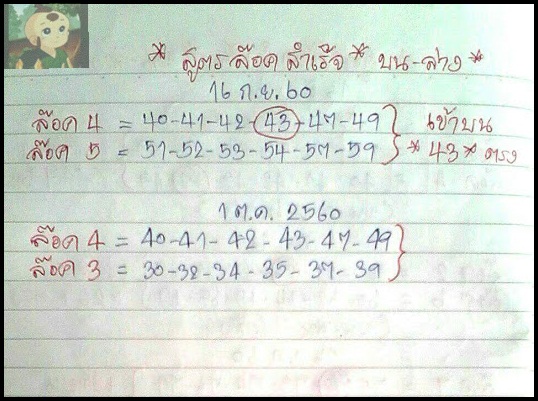 * สูตรล๊อคสำเร็จ * บน-ล่าง *
16 ก.ย. 60
ล๊อค 4 = 40-41-42-43-47-49 } เข้าบน
ล๊อค 5 = 51-52-53-54-57-59 } * 43 * ตรง
1 ต.ค. 2560
ล๊อค 4 = 40-41-42-43-47-49 }
ล๊อค 3 = 30-32-34-35-37-39